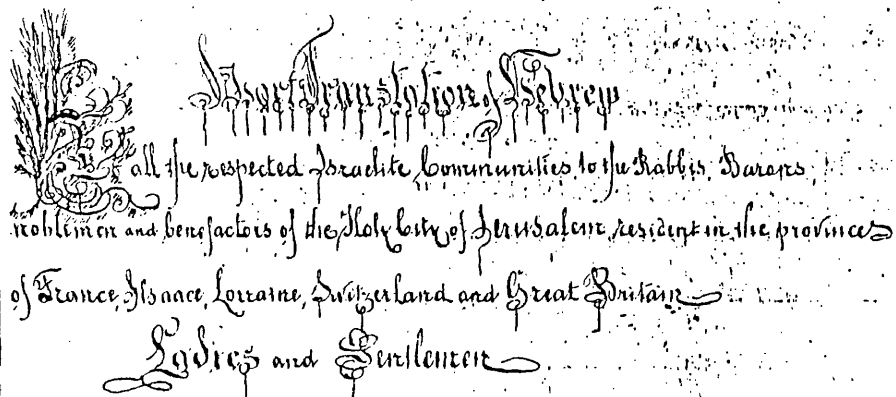 Short Translation of Hebrew
To all the respected Israelite Communities, to the Rabbis, Barons,
noblemen and benefactors of the Holy City of Jerusalem, resident in the provinces
of France, Alsaace, Lorraine, Switzerland and Great Britain
Ladies and Gentlemen